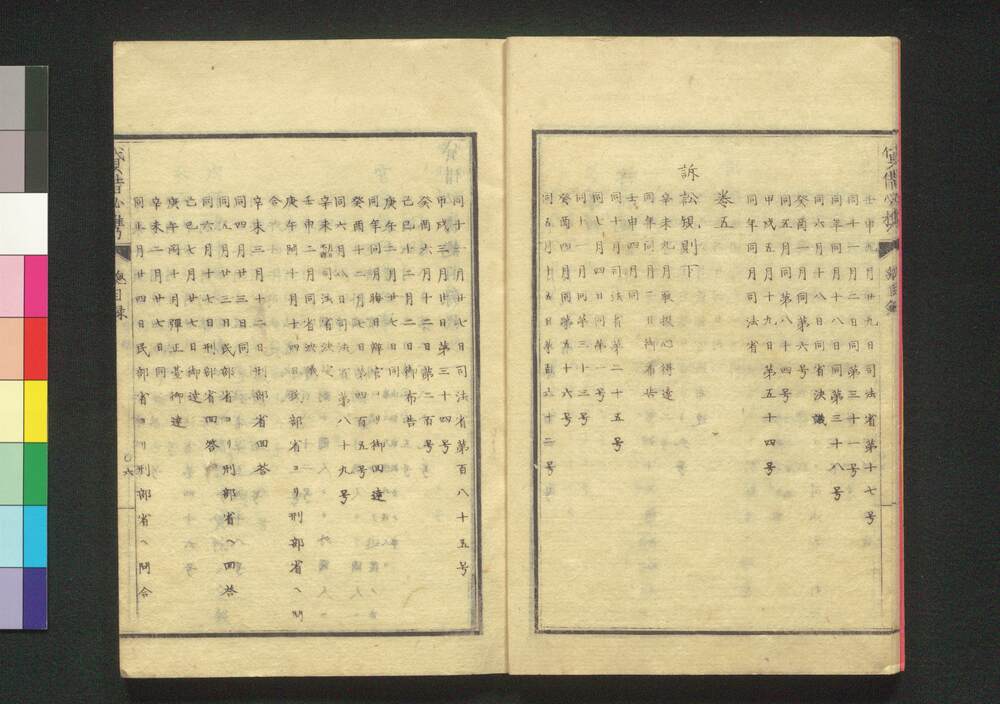 壬申九月廿九日司法省第十七号
同十一月二日同第三十一号
同年同月同日同第三十八号
同六月十八日同省決議
癸酉一月同第六号
同五月同第八十四号
甲戌五月十九日第五十四号
同年同月司法省
巻五
訴訟規則下
辛未九月取扱心得達
同年同月二日御布告
壬申四月同
同十月司法省第二十五号
同七月四日同第一号
同十一月同第三十三号
癸酉四月同第五十六号
同五月十七日第百六十二号
同十一月廿七日司法省第百八十五号
甲戌三月廿日第三十四号
癸酉六月十二日第二百号
己巳十二月二日御布告
庚午二月廿七日同
癸酉十二月七日第四百五号
同六月八日司法省第八十九号
壬申二月同省決議
庚午閏十月十四日兵部省ヨリ刑部省ヘ問
合
辛未三月十二日刑部省回答
同四月廿二日同
同五月廿三日民部省ヨリ刑部省ヘ回答
同六月十七日刑部省回答
己巳七月廿七日御達
庚午閏十月弾正台御達
辛未二月廿七日同
同正月廿四日民部省ヨリ刑部省ヘ問合
総目録
六